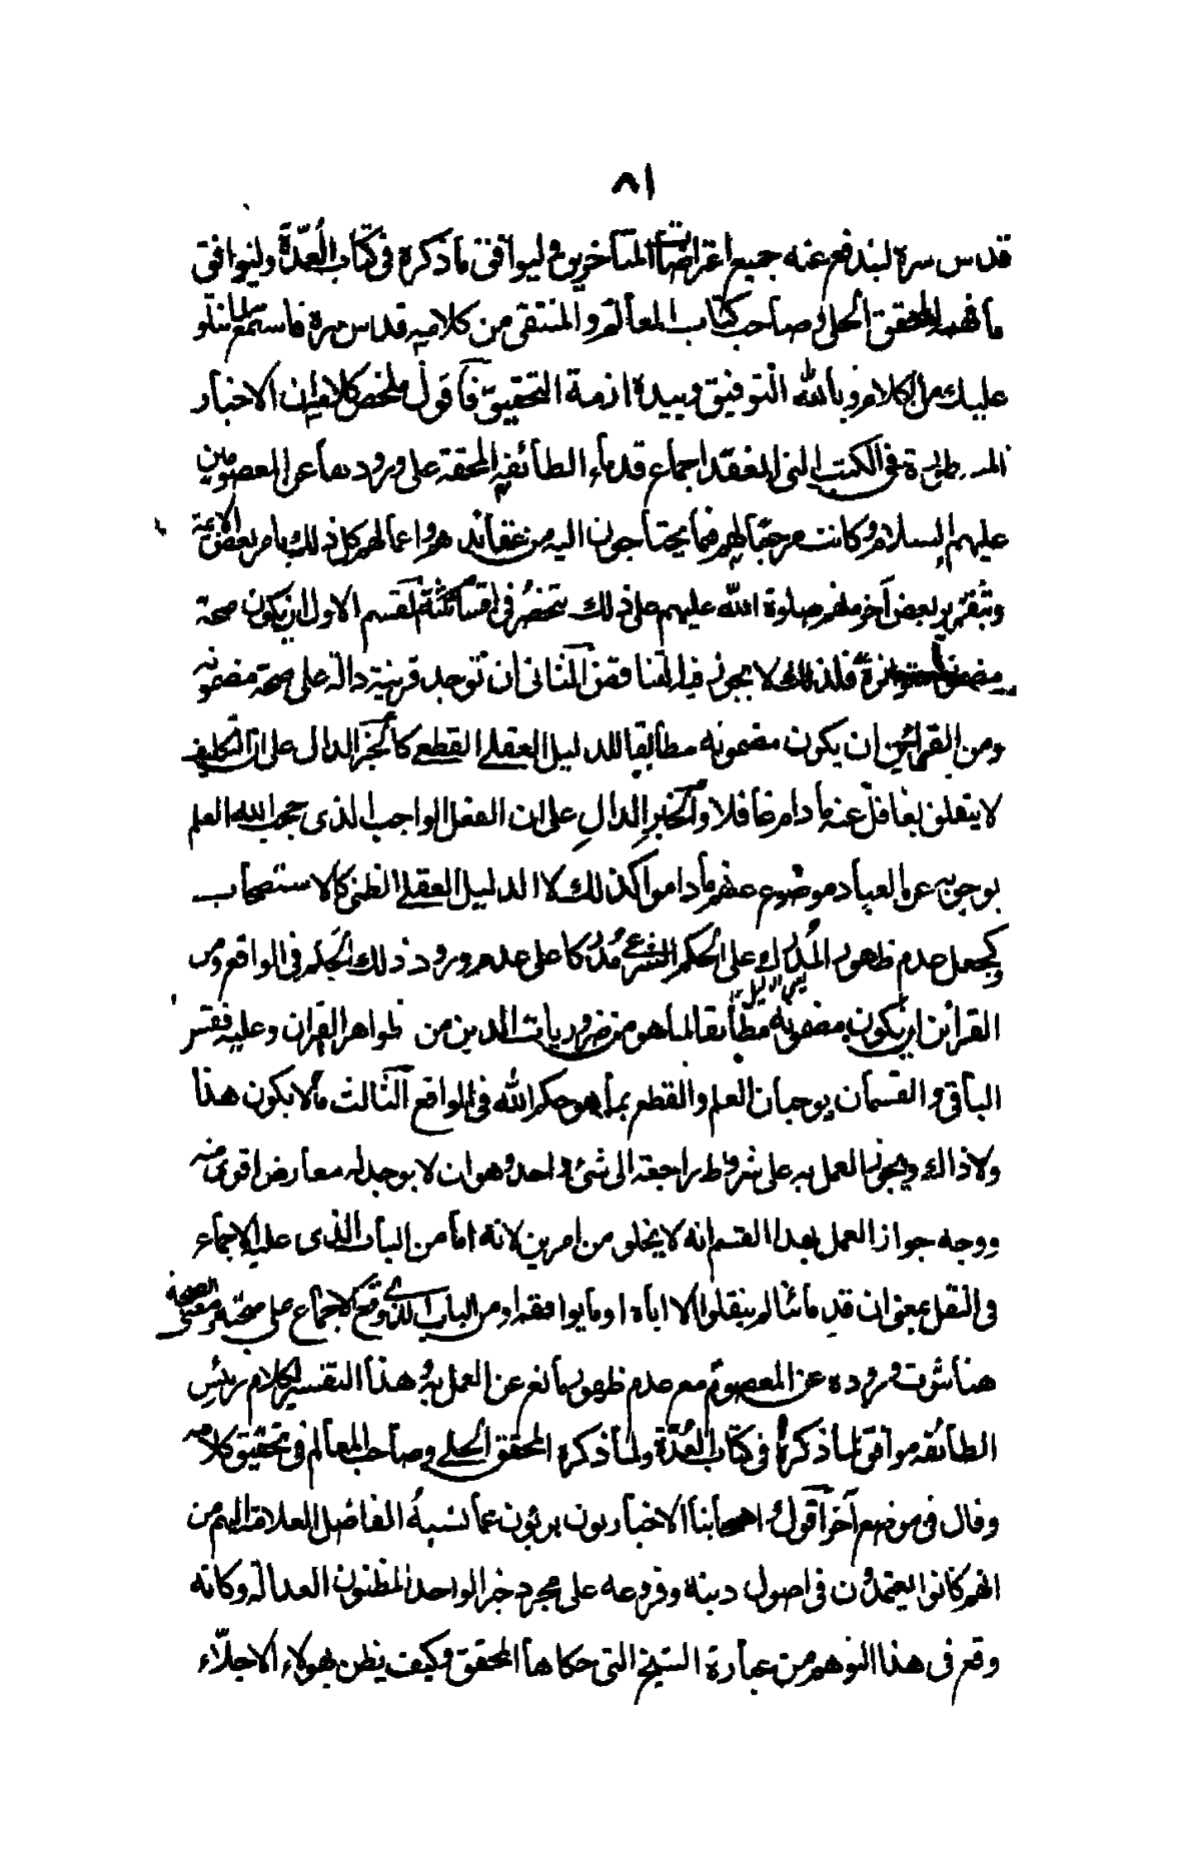 ٨١
قدس سره ليندفع عنه جميع اعتراضات المتأخرين وليوافق ما ذكره في كتاب العُدّة وليوافق
ما فهمه المحقق الحلي وصاحب كتاب المعالم والمنتقى من كلاميه قدس سره فاستمع لما نتلو
عليك من الكلام وبالله التوفيق وبيده ازمة التحقيق فأقول ملخص كلاميه ان الاخبار
المسطورة في الكتب التي انعقد اجماع قدماء الطائفة المحقة على ورودها عن المعصومين
عليهم السلام وكانت مرجعًا لهم فيما يحتاجون اليه من عقائدهم واعمالهم كل ذلك بامر بعض الائمة
وبتقرير بعض آخر منهم صلوة الله عليهم على ذلك تنحصر في اقسام ثلثة القسم الاول ان يكون صحة
مضمونها متواترة فلذلك لا يجوز فيها التناقض الثاني ان توجد قرينة دالة على صحة مضمونه
ومن القرائن ان يكون مضمونه مطابقا للدليل العقلي القطعي كالخبر الدال على ان التكليف
لا يتعلق بغافل عنه ما دام غافلا والخبر الدال على ان الفعل الواجب الذي حجب الله العلم
بوجوبه عن العباد موضوع عنهم ما داموا كذلك لا الدليل العقلي الظني كالاستصحاب
وكجعل عدم ظهور المُدرَك على الحكم الشرعي مُدرَكا على عدم ورود ذلك الحكم في الواقع ومن
القرائن ان يكون مضمونه يعني الدليل مطابقا لما هو من ضروريات الدين من ظواهر القرآن وعليه فقس
الباقي والقسمان يوجبان العلم والقطع بما هو حكم الله في الواقع الثالث ما لا يكون هذا
ولا ذاك ويجوز العمل به على شروط راجعة الى شئ واحد وهو ان لا يوجد له معارض اقوى منه
ووجه جواز العمل بهذا القسم انه لا يخلو من امرين لانه اما من الباب الذي عليه الاجماع
في النقل بمعنى ان قدماءنا لم ينقلوا الا اياه او ما يوافقه او من الباب الذي وقع الاجماع على صحته ومعنى الصحة
هنا ثبوت وروده عن المعصوم مع عدم ظهور مانع عن العمل به وهذا التفسير لكلام رئيس
الطائفة موافق لما ذكره في كتاب العُدّة ولما ذكره المحقق الحلي وصاحب المعالم في تحقيق كلامه
وقال في موضع آخر أقول اصحابنا الاخباريون بريئون عما نسبهُ الفاضل العلامة اليهم من
انهم كانوا يعتمدون في اصول دينه وفروعه على مجرد خبر الواحد المظنون العدالة وكانه
وقع في هذا التوهم من عبارة الشيخ التي حكاها المحقق وكيف يظن بهولاء الاجلّاء